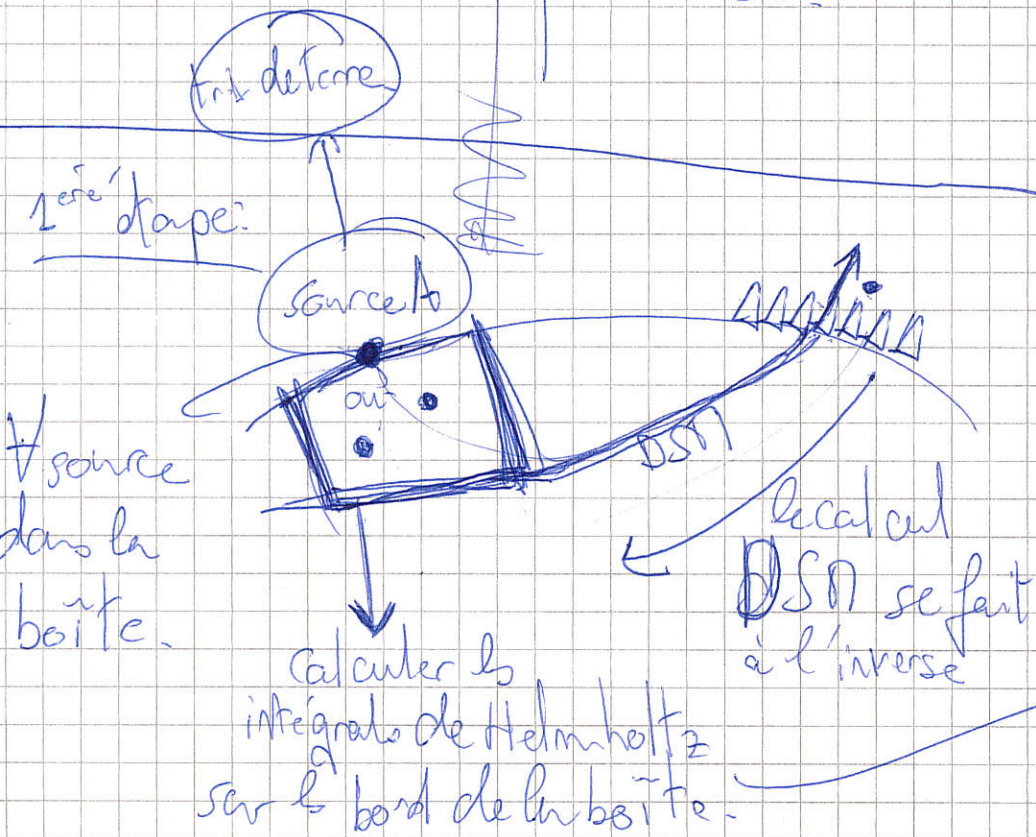 1ère étape:
source A
ou
∀ source
dans la
boîte.
DSM
le calcul
DSM se fait
à l'inverse
Calculer ls
intégrals de Helmholtz
sur ls bord de la boîte.